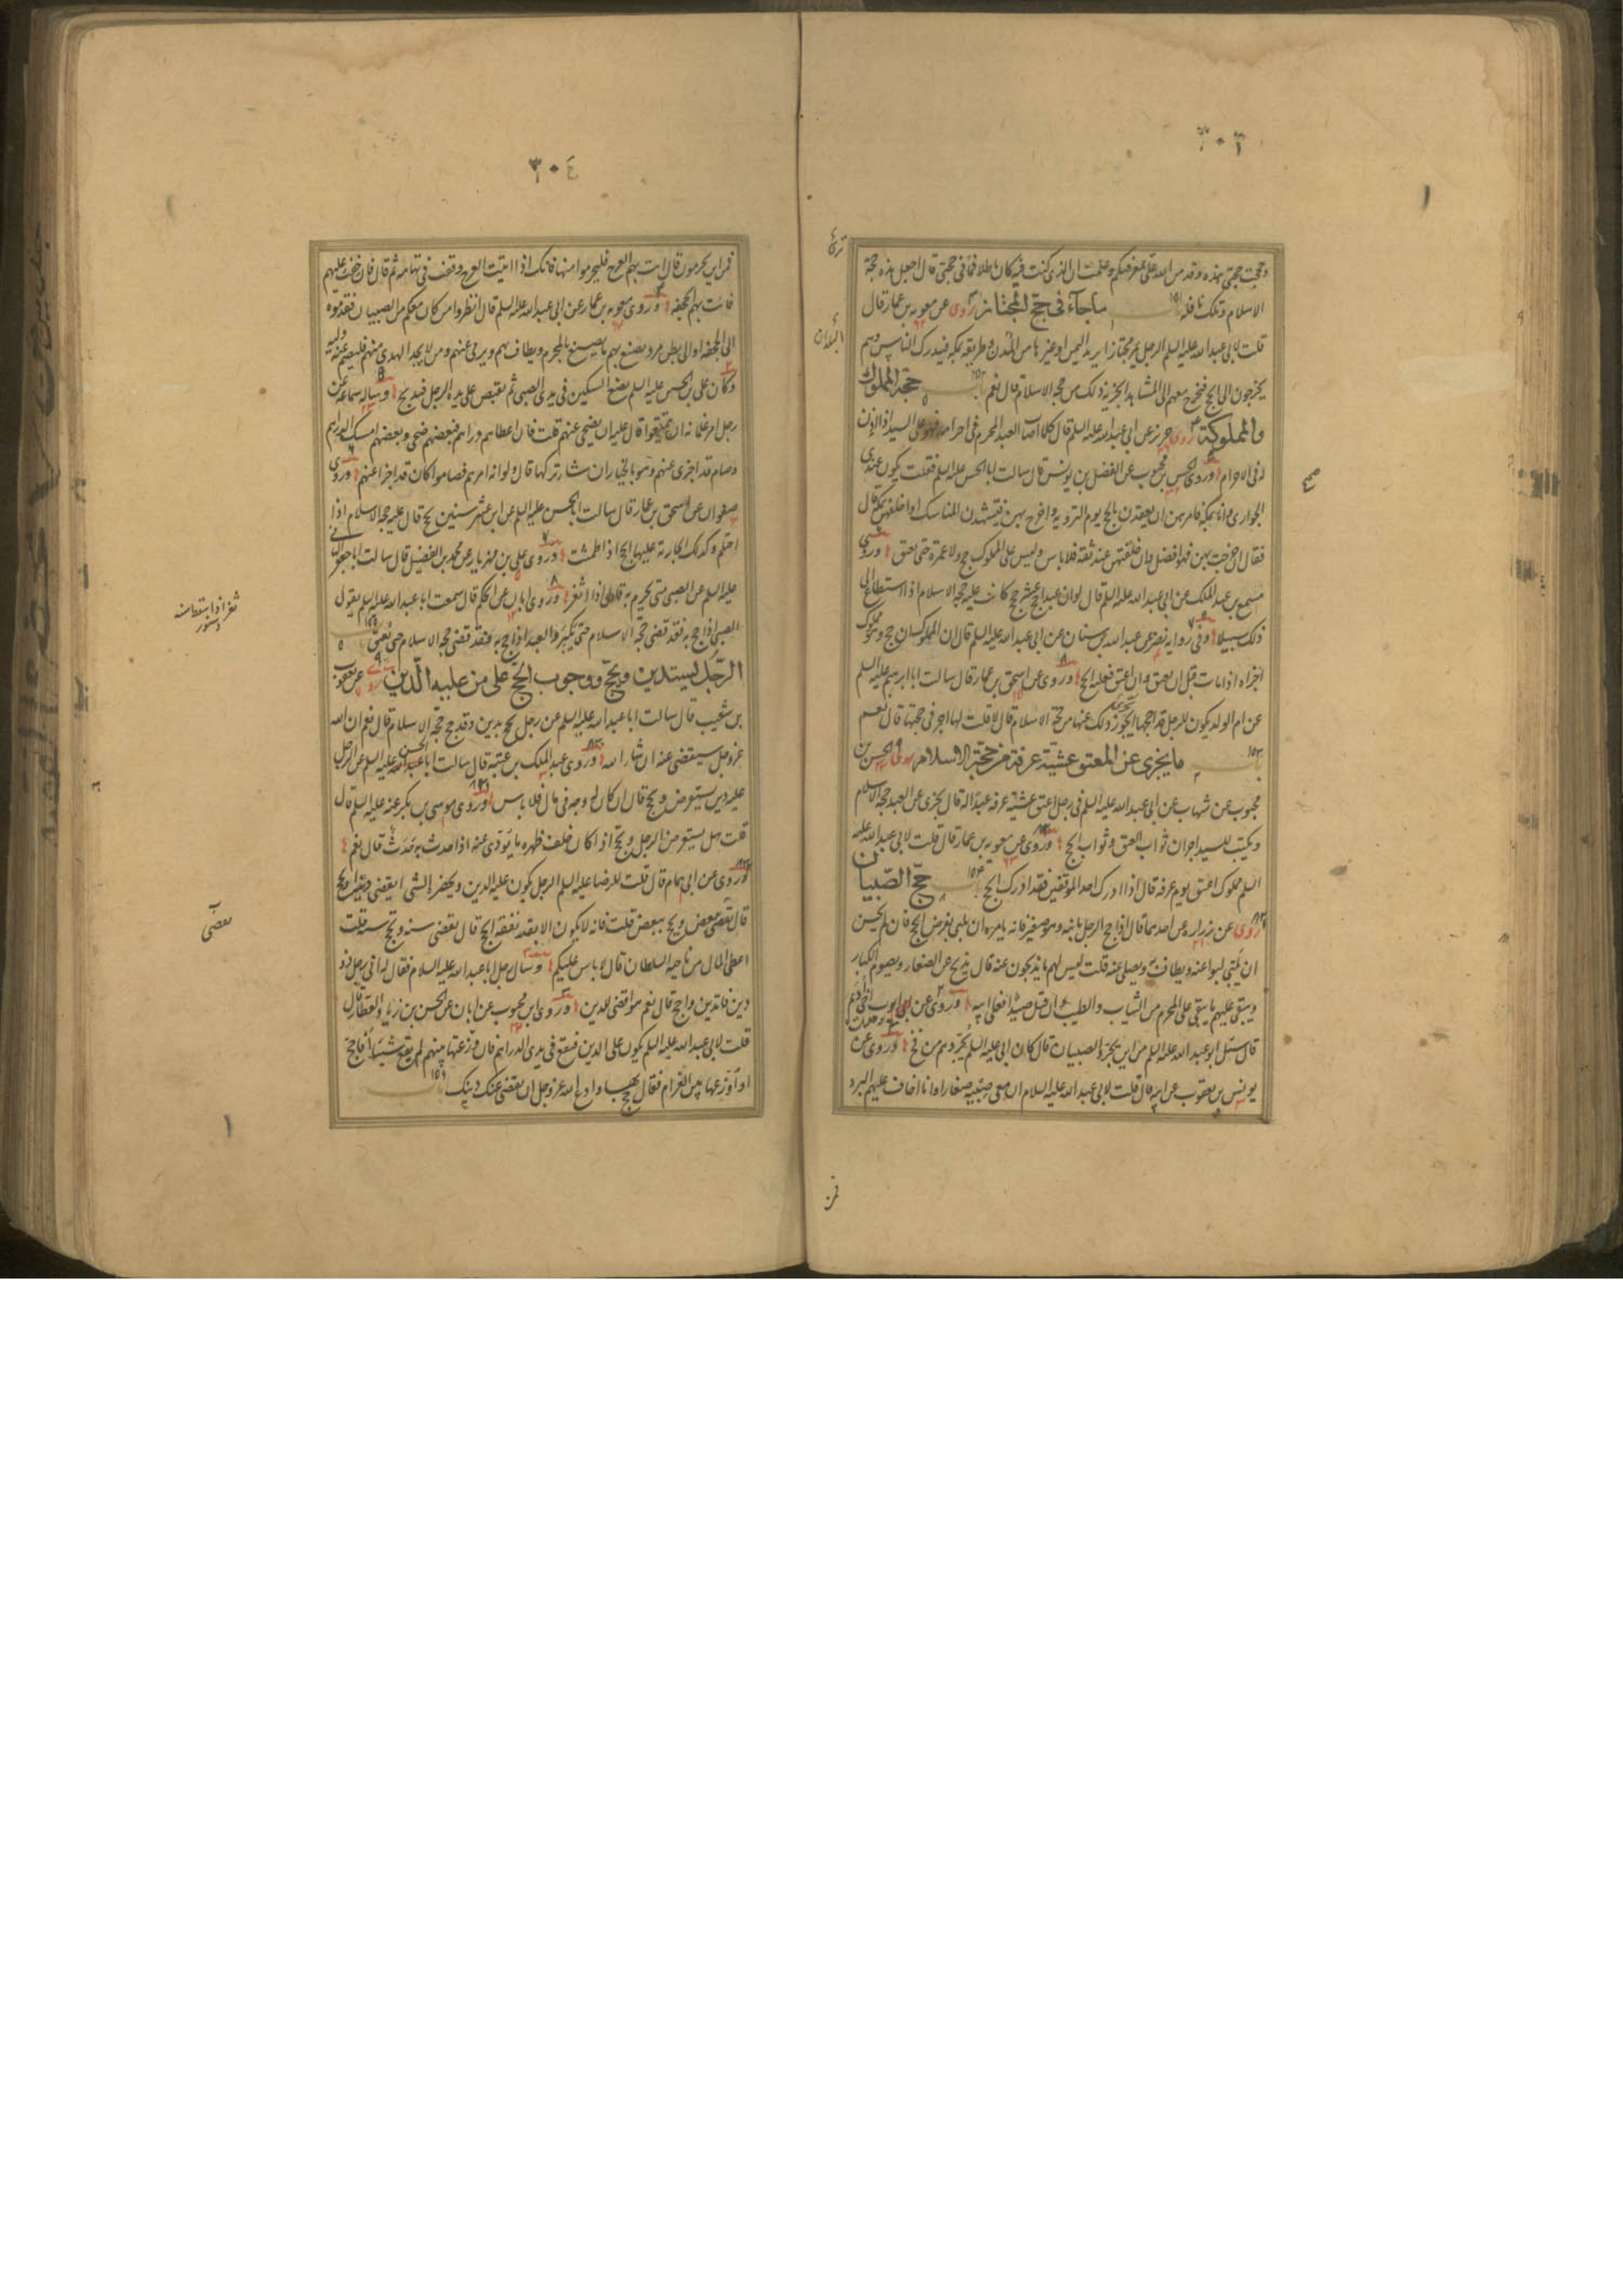 ٣٠٣
وحججت حجتي هذه وقد من الله علي بمعرفتكم وعلمت ان الذي كنت فيه كان باطلا فما في حجتي قال اجعل هذه حجة
الاسلام وتلك نافلة باب ما جاء في حج المجتاز روى عن معوية بن عمار قال
قلت لابي عبد الله عليه السلم الرجل يمر مجتازا يريد اليمن او غيرها من البلدان وطريقه بمكة فيدرك الناس وهم
يخرجون الى الحج فيخرج معهم الى المشاهد ايجزيه ذلك من حجة الاسلام قال نعم باب حج المملوك
والمملوكة روى حريز عن ابي عبد الله عليه السلم قال كلما اصاب العبد المحرم في احرامه فهو على السيد اذا اذن
له في الاحرام وروى الحسن بن محبوب عن الفضل بن يونس قال سالت ابا الحسن عليه السلم فقلت يكون عندي
الجواري وانا بمكة فامرهن ان يعقدن بالحج يوم التروية واخرج بهن فيشهدن المناسك او اخلفهن بمكة قال
فقال ان خرجت بهن فهو افضل وان خلفتهن عند ثقة فلا باس وليس على المملوك حج ولا عمرة حتى يعتق وروى
مسمع بن عبد الملك عن ابي عبد الله عليه السلم قال لو ان عبدا حج عشر حجج كانت عليه حجة الاسلام اذا استطاع الى
ذلك سبيلا وفي رواية نضر عن عبد الله بن سنان عن ابي عبد الله عليه السلم قال ان المملوك ان حج وهو مملوك
اجزاه اذا مات قبل ان يعتق وان اعتق فعليه الحج وروى عن اسحق بن عمار قال سالت ابا ابرهيم عليه السلم
عن ام الولد يكون للرجل قد احجها ايجوز ذلك عنها من حجة الاسلام قال لا قلت لها اجر في حجتها قال نعم
باب ما يجزي عن المعتق عشية عرفة من حجة الاسلام روى الحسن بن
محبوب عن شهاب عن ابي عبد الله عليه السلم في رجل اعتق عشية عرفة عبدا له قال يجزي عن العبد حجة الاسلام
ويكتب للسيد اجران ثواب العتق وثواب الحج وروى عن معوية بن عمار قال قلت لابي عبد الله عليه
السلم مملوك اعتق يوم عرفة قال اذا ادرك احد الموقفين فقد ادرك الحج باب حج الصبيان
روى عن زرارة عن احدهما قال اذا حج الرجل بابنه وهو صغير فانه يامره ان يلبي ويفرض الحج فان لم يحسن
ان يلبي لبوا عنه ويطاف به ويصلى عنه قلت ليس لهم ما يذبحون عنه قال يذبح عن الصغار ويصوم الكبار
ويتقى عليهم ما يتقى على المحرم من الثياب والطيب وان قتل صيدا فعلى ابيه وروى عن ايوب اخي اديم
قال سئل ابو عبد الله عليه السلم من اين يجرد الصبيان قال كان ابي عليه السلم يجردهم من فخ وروى عن
يونس بن يعقوب عن ابيه قال قلت لابي عبد الله عليه السلام ان معي صبية صغارا وانا اخاف عليهم البرد
البلدان
٣٠٤
فمن اين يحرمون قال ائت بهم العرج فليحرموا منها فانك اذا اتيت العرج وقعت في تهامة ثم قال فان خفت عليهم
فائت بهم الجحفة وروى معوية بن عمار عن ابي عبد الله عليه السلم قال انظروا من كان معكم من الصبيان فقدموه
الى الجحفة او الى بطن مر ويصنع بهم ما يصنع بالمحرم ويطاف بهم ويرمى عنهم ومن لا يجد الهدي منهم فليصم عنه وليه
وكان علي بن الحسين عليه السلم يضع السكين في يد الصبي ثم يقبض على يده الرجل فيذبح وساله سماعة عن
رجل امر غلمانه ان يتمتعوا قال عليه ان يضحي عنهم قلت فان اعطاهم دراهم فبعضهم ضحى وبعضهم امسك الدراهم
وصام قد اجزى عنهم وهو بالخيار ان شاء تركها قال ولو انه امرهم فصاموا كان قد اجزا عنهم وروى
صفوان عن اسحق بن عمار قال سالت ابا الحسن عليه السلم عن ابن عشر سنين يحج قال عليه حجة الاسلام اذا
احتلم وكذلك الجارية عليها الحج اذا طمثت وروى علي بن مهزيار عن محمد بن الفضيل قال سالت ابا جعفر الثاني
عليه السلم عن الصبي متى يحرم به قال اذا اثغر وروى ابان عن الحكم قال سمعت ابا عبد الله عليه السلم يقول
الصبي اذا حج به فقد قضى حجة الاسلام حتى يكبر والعبد اذا حج به فقد قضى حجة الاسلام حتى يعتق باب
الرجل يستدين ويحج ووجوب الحج على من عليه الدين روى عن يعقوب
بن شعيب قال سالت ابا عبد الله عليه السلم عن رجل يحج بدين وقد حج حجة الاسلام قال نعم ان الله
عز وجل سيقضي عنه ان شاء الله وروى عبد الملك بن عتبة قال سالت ابا الحسن عليه السلم عن الرجل
عليه دين يستقرض ويحج قال ان كان له وجه في مال فلا باس وروى موسى بن بكر عنه عليه السلم قال
قلت هل يستقرض الرجل ويحج اذا كان خلف ظهره ما يؤدى عنه اذا حدث به حدث قال نعم
وروى عن ابي همام قال قلت للرضا عليه السلم الرجل يكون عليه الدين ويحضر الشي ايقضي دينه او يحج
قال يقضي ببعض ويحج ببعض قلت فانه لا يكون الا بقدر نفقة الحج قال يقضي سنة ويحج سنة قلت
اعطي المال من ناحية السلطان قال لا باس عليكم وسال رجل ابا عبد الله عليه السلام فقال له اني رجل ذو
دين فاتدين واحج قال نعم هو اقضى للدين وروى ابن محبوب عن ابان عن الحسن بن زياد العطار قال
قلت لابي عبد الله عليه السلم يكون علي الدين فيقع في يدي الدراهم فان وزعتها بينهم لم يقع شيئا افاحج
او اوزعها بين الغرام فقال حج بها وادع الله عز وجل ان يقضي عنك دينك باب
ثغر اذا سقط اسنه
يقضي